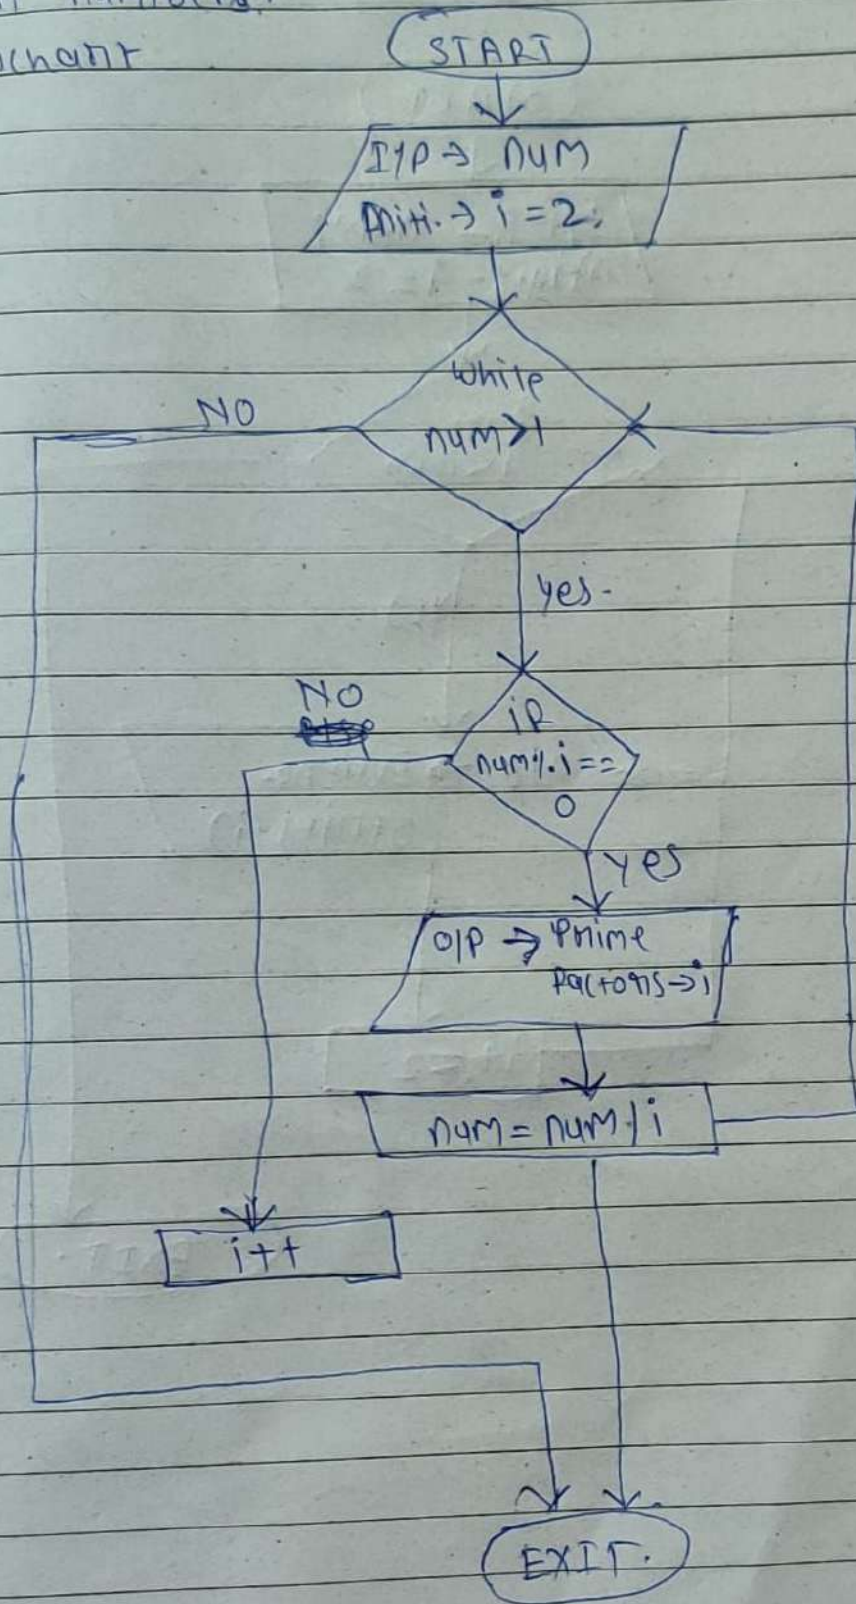 START
I/P → num
Initi. → i = 2;
while
num>1
NO
yes.
NO
if
num%i==
0
yes
O/P → Prime
Factors → i
num = num / i
i++
EXIT.